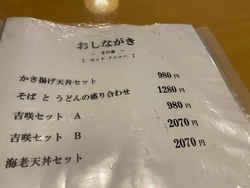 おしながき
～ その壱 ～
[ セット メニュー ]
かき揚げ天丼セット 980円
そば と うどんの盛り合わせ 1280円
吉咲セット A 980円
吉咲セット B 2070円
海老天丼セット 2070円